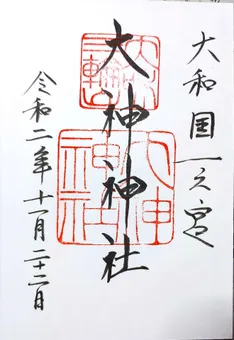 大和国一之宮
三輪明神
大神神社
大神神社
令和二年十一月二十二日